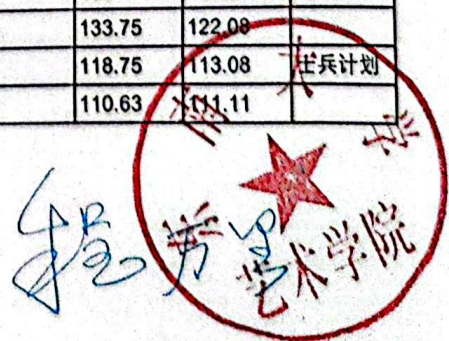 133.75 122.08
118.75 113.08 士兵计划
110.63 111.11
大学
艺术学院
程万里